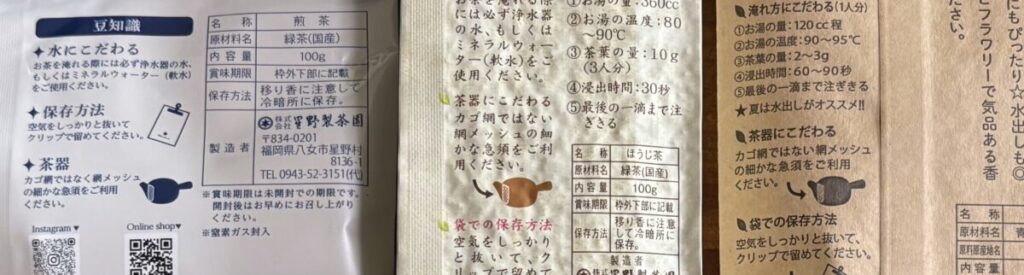 豆知識
水にこだわる
お茶を淹れる際には必ず浄水器の水、
もしくはミネラルウォーター(軟水)
をご使用ください。
保存方法
空気をしっかりと抜いて
クリップで留めてください。
茶器
カゴ網ではない網メッシュ
の細かな急須をご利用
ください。
Instagram▼
Online shop▼
名称 煎茶
原材料名 緑茶(国産)
内容量 100g
賞味期限 枠外下部に記載
保存方法 移り香に注意して
冷暗所に保存。
製造者 株式会社 星野製茶園
〒834-0201
福岡県八女市星野村
8136-1
TEL 0943-52-3151(代)
※賞味期限は未開封での期限です。
開封後はお早めにお召し上がり
ください。
※窒素ガス封入
お茶を淹れる際
には必ず浄水器
の水、もしくは
ミネラルウォー
ター(軟水)をご
使用ください。
茶器にこだわる
カゴ網ではない
網メッシュの細
かな急須をご利
用ください。
袋での保存方法
空気をしっかり
と抜いて、ク
リップで留めて
①お湯の量:360cc
②お湯の温度:80
~90℃
③茶葉の量:10g
(3人分)
④浸出時間:30秒
⑤最後の一滴まで注
ぎきる
名称 ほうじ茶
原材料名 緑茶(国産)
内容量 100g
賞味期限 枠外下部に記載
保存方法 移り香に注意
して冷暗所に
保存。
製造者
株式会社 星野製茶園
淹れ方にこだわる(1人分)
①お湯の量:120cc程
②お湯の温度:90~95℃
③茶葉の量:2~3g
④浸出時間:60~90秒
⑤最後の一滴まで注ぎきる
★夏は水出しがオススメ!!
茶器にこだわる
カゴ網ではない網メッシュ
の細かな急須をご利用
ください。
袋での保存方法
空気をしっかりと抜いて、
クリップで留めてください。
にもぴったり☆水出しも◎
フラワリーで気品ある香
。
名称
原材料名
原料原産地名
内容量